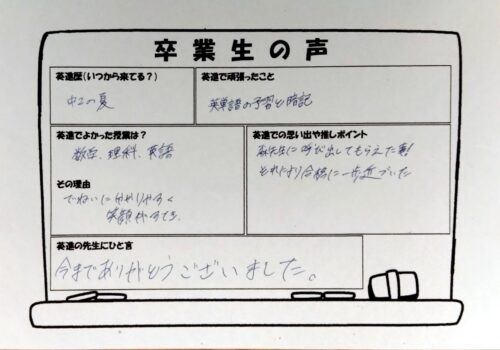 卒業生の声
英進歴(いつから来てる?)
中2の夏
英進で頑張ったこと
英単語の予習と暗記
英進でよかった授業は?
数学、理科、英語
その理由
ていねいに分かりやすく
笑顔がすてき
英進での思い出や推しポイント
先生に呼び出してもらえた事!
それにより合格に一歩近づいた
英進の先生にひと言
今までありがとうございました。